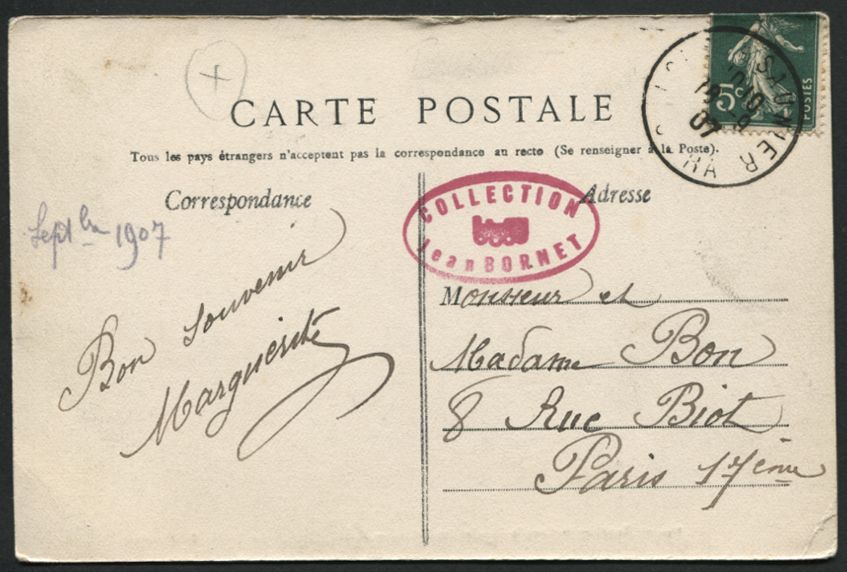 CARTE POSTALE
Tous les pays étrangers n'acceptent pas la correspondance au recto (Se renseigner à la Poste).
Correspondance
Adresse
5c
POSTES
07
COLLECTION
Jean BORNET
1907
Bon souvenir
Marguerite
Monsieur et
Madame Bon
8 Rue Biot
Paris 17ème